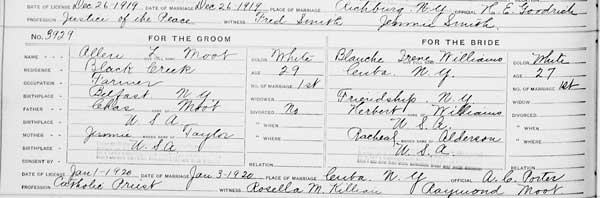 DATE OF LICENSE Dec 26.1919. DATE OF MARRIAGE Dec 26.1919. PLACE OF MARRIAGE Richburg. N.Y. OFFICIAL H. E. Goodrich
PROFESSION Justice of the Peace WITNESS Fred Smith Jennie Smith.
No. 3929 FOR THE GROOM FOR THE BRIDE
NAME Allen L Moot COLOR White Blanche Irene Williams COLOR White
RESIDENCE Black Creek AGE 29 Cuba. N.Y. AGE 27
OCCUPATION Farmer NO. OF MARRIAGE 1st NO. OF MARRIAGE 1st
BIRTHPLACE Belfast N.Y WIDOWER Friendship. N.Y. WIDOW
FATHER Chas Moot DIVORCED No Herbert Williams DIVORCED
BIRTHPLACE U.S.A. " WHEN U.S.A. " WHEN
MOTHER Jennie MAIDEN NAME OF Taylor " WHERE Racheal MAIDEN NAME OF Alderson " WHERE
BIRTHPLACE U.S.A U.S.A.
CONSENT BY RELATION RELATION
DATE OF LICENSE Jan 1-1920. DATE OF MARRIAGE Jan 3-1920. PLACE OF MARRIAGE Cuba. N.Y OFFICIAL A. C. Porter
PROFESSION Catholic Priest WITNESS Rosella M. Killian Raymond Moot